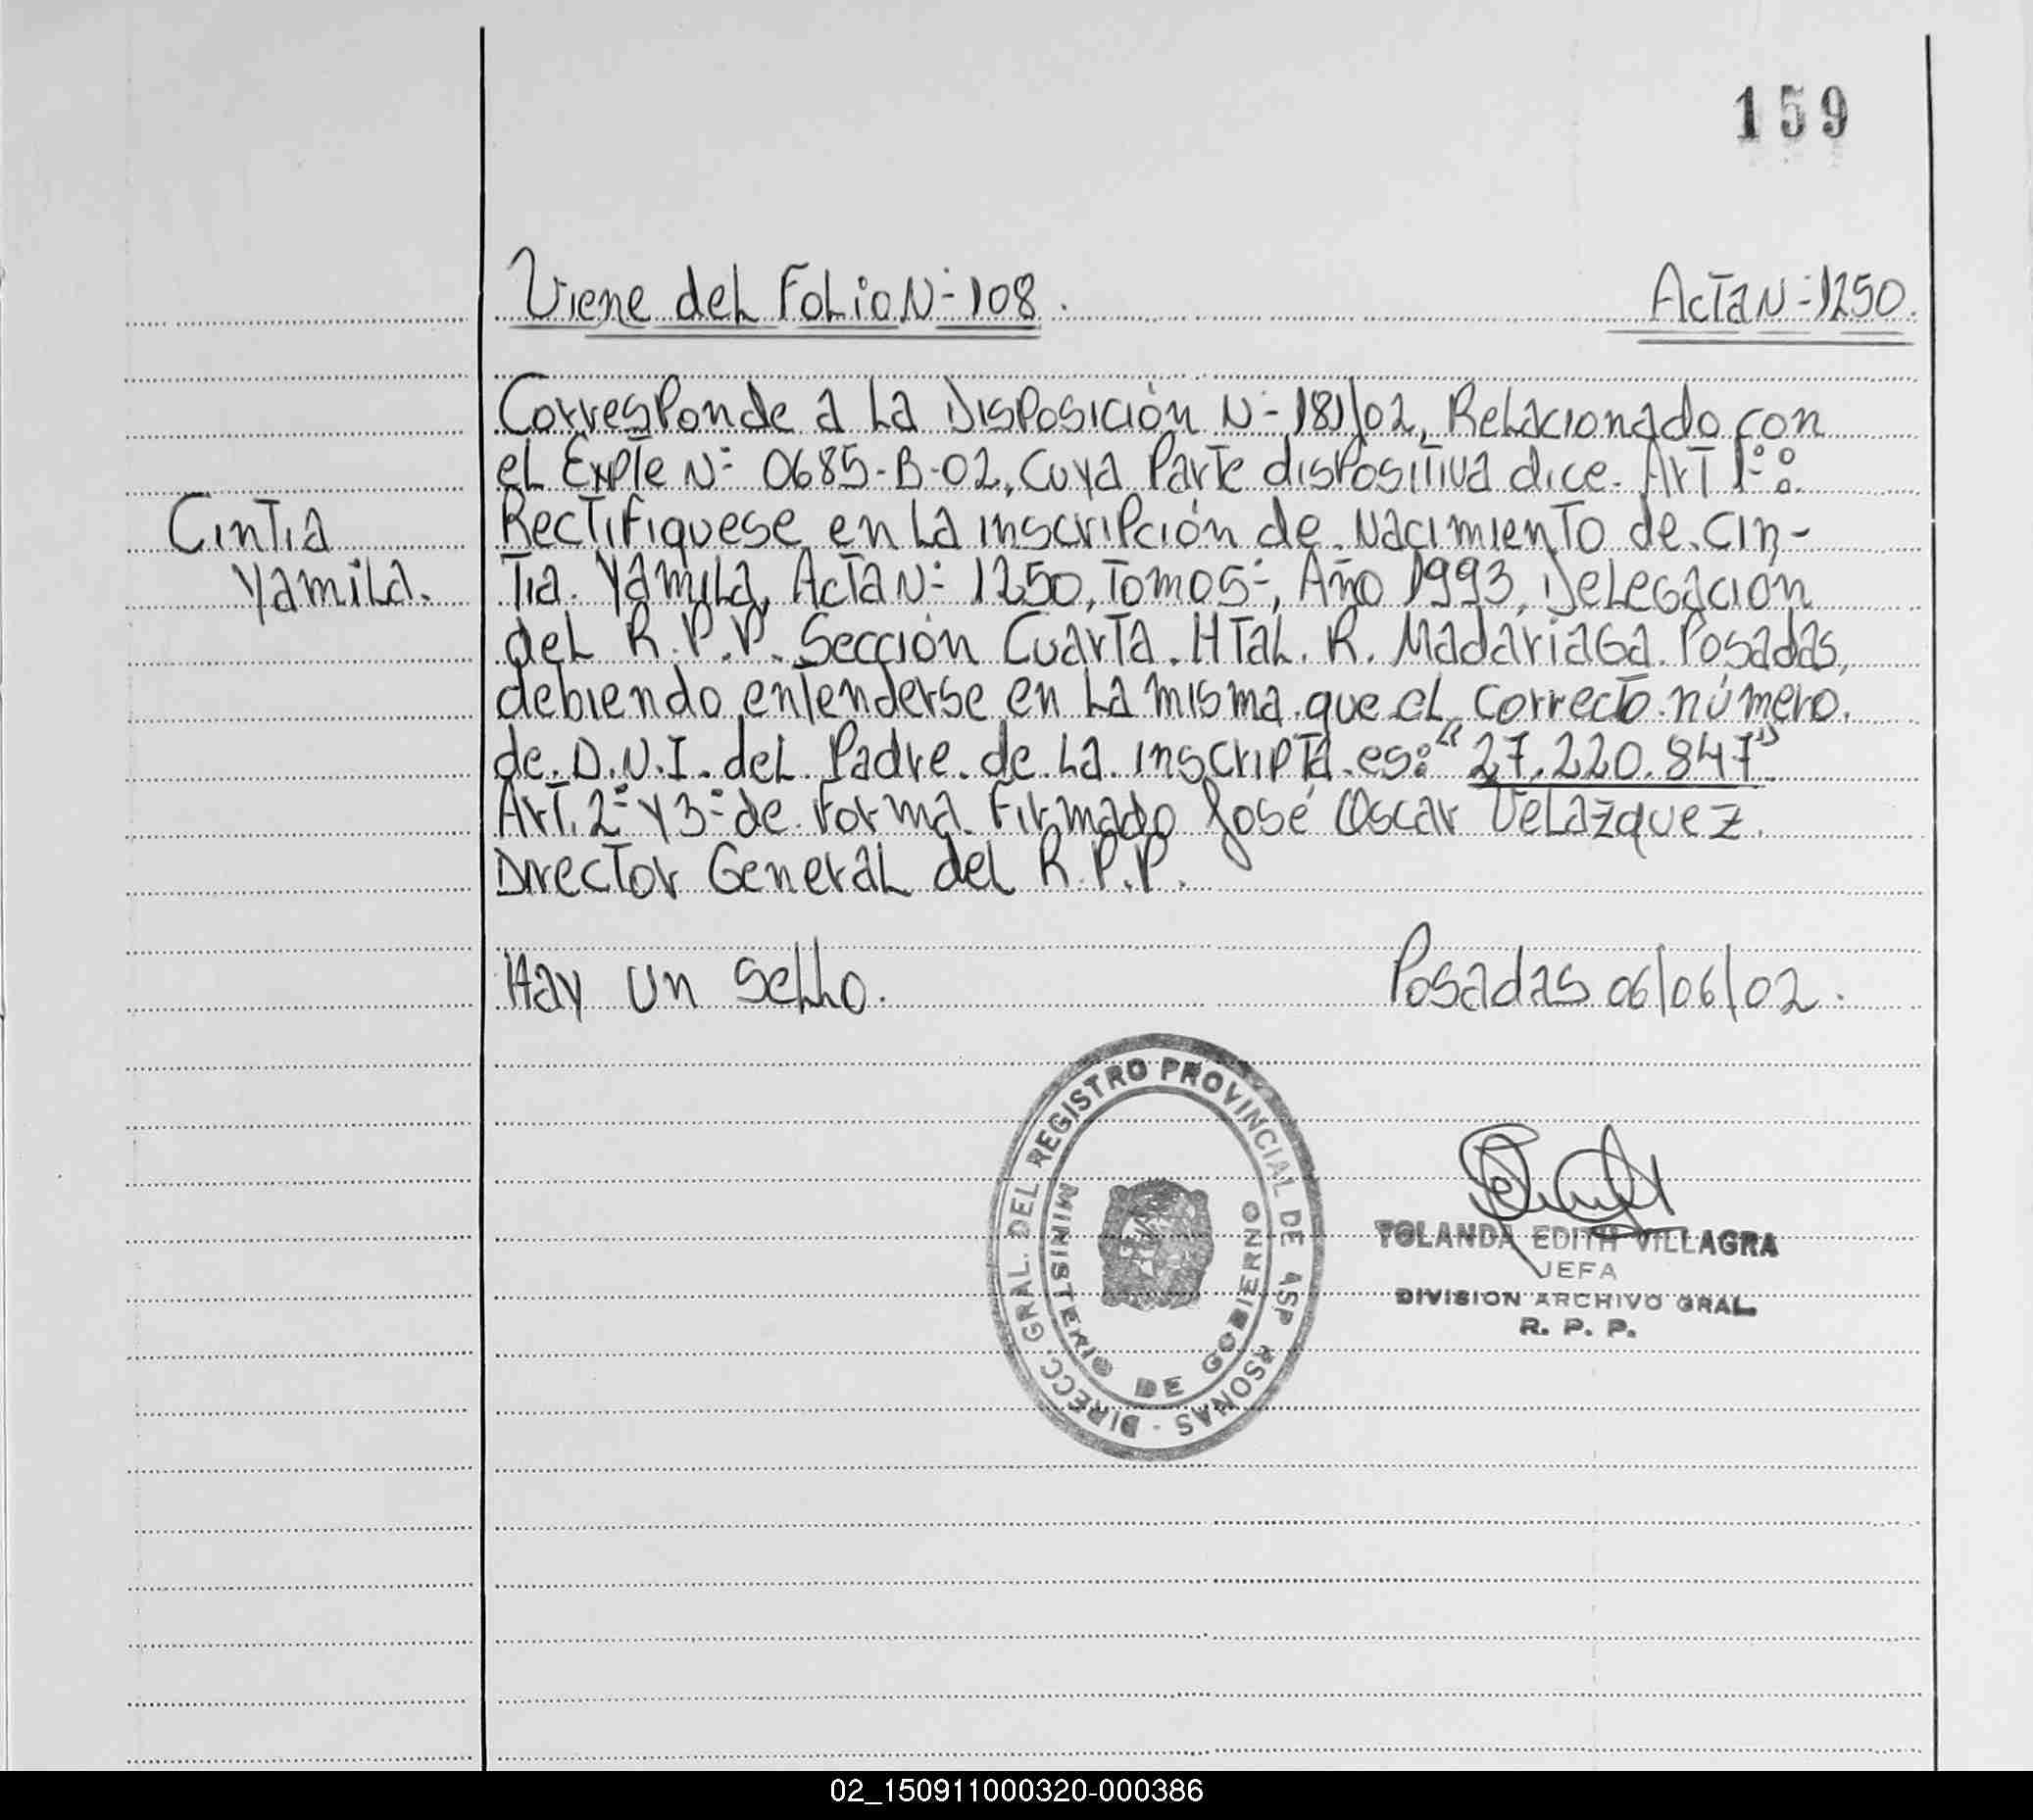 159
Viene del Folio Nº 108. Acta Nº 1250.
Corresponde a la Disposición Nº 181/02, Relacionado con
el Expte Nº 0685-B-02, Cuya Parte dispositiva dice. Art 1º:
Cintia
Yamila.
Rectifiquese en la inscripción de Nacimiento de Cin-
tia Yamila, Acta Nº 1250, Tomo 5º, Año 1993, Delegación
del R.P.P. Sección Cuarta. Htal. R. Madariaga. Posadas,
debiendo entenderse en la misma que el correcto número
de D.N.I. del Padre de la inscripta es: "27.220.847"
Art. 2º y 3º de forma. Firmado José Oscar Velazquez.
Director General del R.P.P.
Hay un Sello. Posadas 06/06/02.
DIRECC. GRAL. DEL REGISTRO PROVINCIAL DE
MINISTERIO DE GOBIERNO
YOLANDA EDITH VILLAGRA
JEFA
DIVISION ARCHIVO GRAL.
R. P. P.
02_150911000320-000386